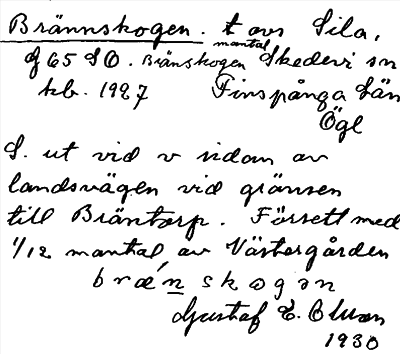 Brännskogen. t avs Sila,
mantal
g 65 SO. Bränskogen Skedevi sn
kb. 1927 Finspånga län
Ögl
S. ut vid v sidan av
landsvägen vid gränsen
till Bräntorp. Försett med
1/12 mantal av Västergården
bræ´n skogən
Gustaf E.
1930